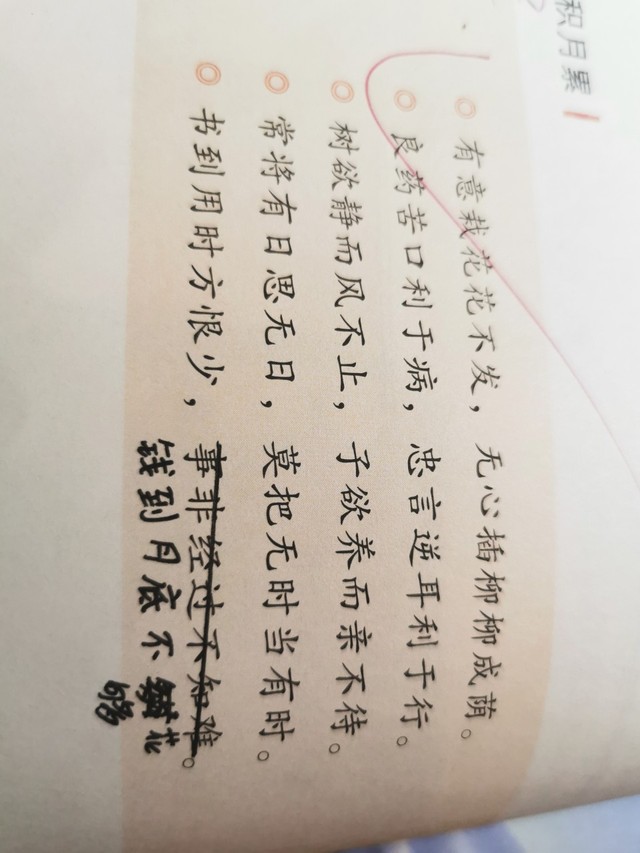 积月累
有意栽花花不发，无心插柳柳成荫。
良药苦口利于病，忠言逆耳利于行。
树欲静而风不止，子欲养而亲不待。
常将有日思无日，莫把无时当有时。
书到用时方恨少，事非经过不知难。
钱到月底不够花